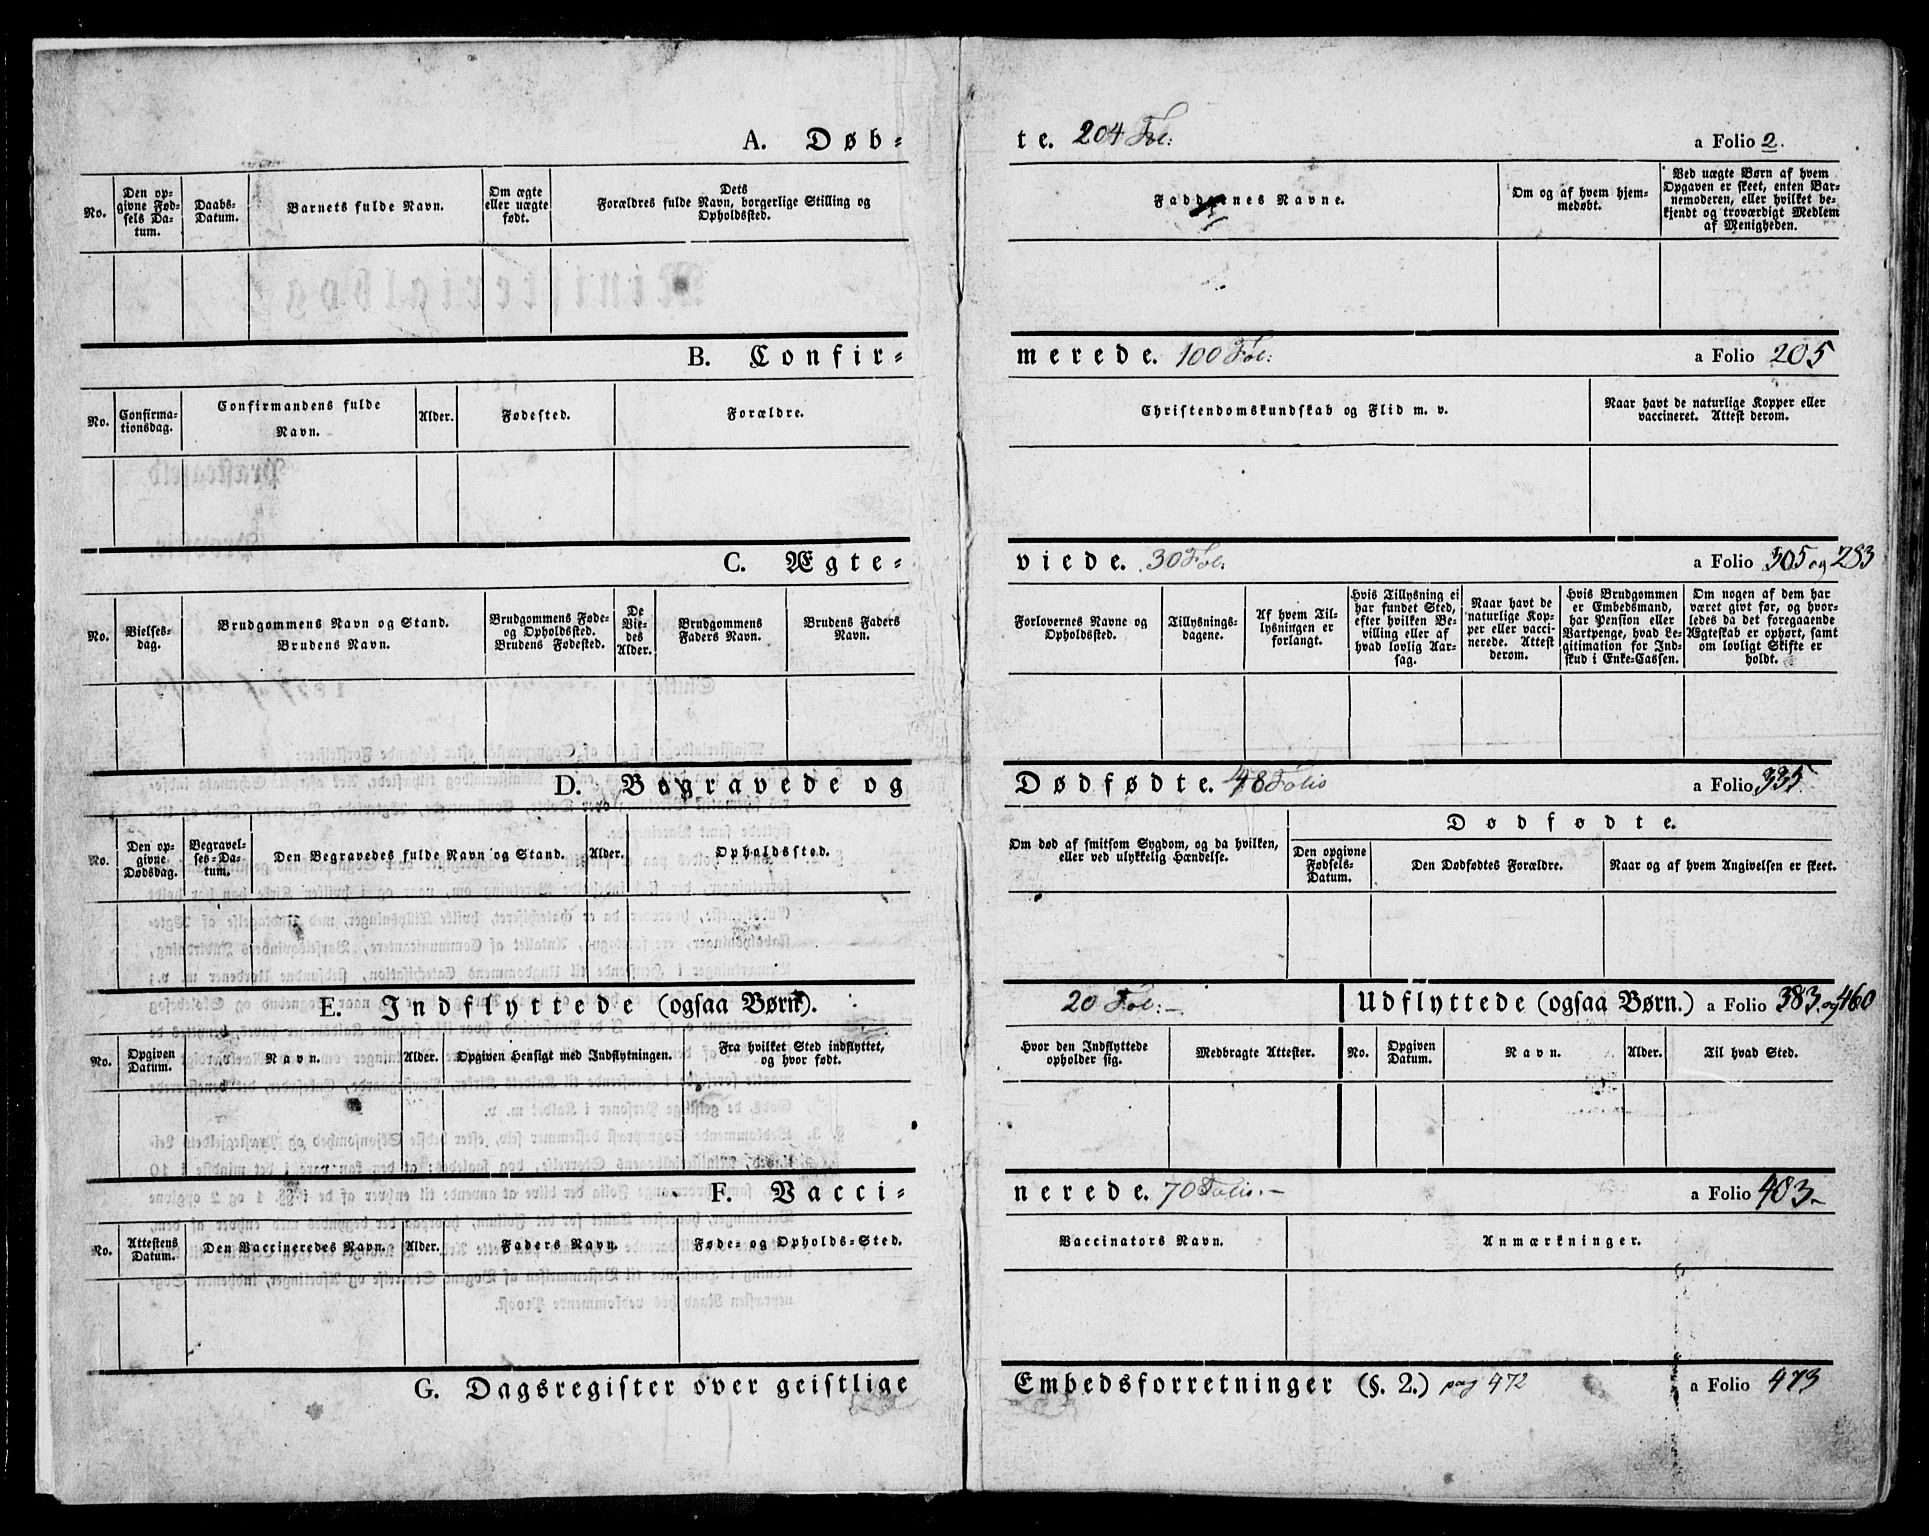 A. Døbte. 204 Fol: a Folio 2.
No.
Den opgivne Fødsels Datum.
Daabs-Datum.
Barnets fulde Navn.
Om ægte eller uægte født.
Dets Forældres fulde Navn, borgerlige Stilling og Opholdsted.
Faddernes Navne.
Om og af hvem hjemmedøbt.
Ved uægte Børn af hvem Opgaven er skeet, enten Barnemoderen, eller hvilket bekjendt og troværdigt Medlem af Menigheden.
B. Confirmerede. 100 Fol: a Folio 205
No.
Confirmationsdag.
Confirmandens fulde Navn.
Alder.
Fødested.
Forældre.
Christendomskundskab og Flid m. v.
Naar havt de naturlige Kopper eller vaccineret. Attest derom.
C. Ægteviede. 30 Fol: a Folio 305 og 283
No.
Vielsesdag.
Brudgommens Navn og Stand.
Brudens Navn.
Brudgommens Føde- og Opholdsted.
Brudens Fødested.
De Viedes Alder.
Brudgommens Faders Navn.
Brudens Faders Navn.
Forlovernes Navne og Opholdsted.
Tillysningsdagene.
Af hvem Tillysningen er forlangt.
Hvis Tillysning ei har fundet Sted, efter hvilken Bevilling eller af hvad lovlig Aarsag.
Naar havt de naturlige Kopper eller vaccinerede. Attest derom.
Hvis Brudgommen er Embedsmand, har Pension eller Vartpenge, hvad Legitimation for Indskud i Enke-Cassen.
Om nogen af dem har været givt før, og hvorledes da det foregaaende Ægteskab er ophørt, samt om lovligt Skifte er holdt.
D. Begravede og Dødfødte. 48 Folio a Folio 335
No.
Den opgivne Dødsdag.
Begravelses-Datum.
Den Begravedes fulde Navn og Stand.
Alder.
Opholdssted.
Om død af smitsom Sygdom, og da hvilken, eller ved ulykkelig Hændelse.
Dødfødte.
Den opgivne Fødsels-Datum.
Den Dødfødtes Forældre.
Naar og af hvem Angivelsen er skeet.
E. Indflyttede (ogsaa Børn). 20 Fol: Udflyttede (ogsaa Børn.) a Folio 383 og 460
No.
Opgiven Datum.
Navn.
Alder.
Opgiven Hensigt med Indflytningen.
Fra hvilket Sted indflyttet, og hvor født.
Hvor den Indflyttede opholder sig.
Medbragte Attester.
No.
Opgiven Datum.
Navn.
Alder.
Til hvad Sted.
F. Vaccinerede. 70 Folio.- a Folio 403-
No.
Attestens Datum.
Den Vaccineredes Navn.
Alder.
Faders Navn.
Føde- og Opholds-Sted.
Vaccinators Navn.
Anmærkninger.
G. Dagsregister over geistlige Embedsforretninger (§. 2.) pag 472 a Folio 473